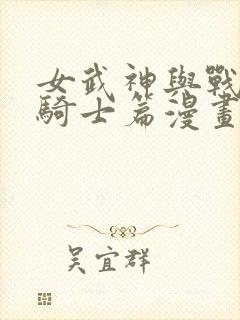 女武神與戰
騎士篇漫畫
吳宜群